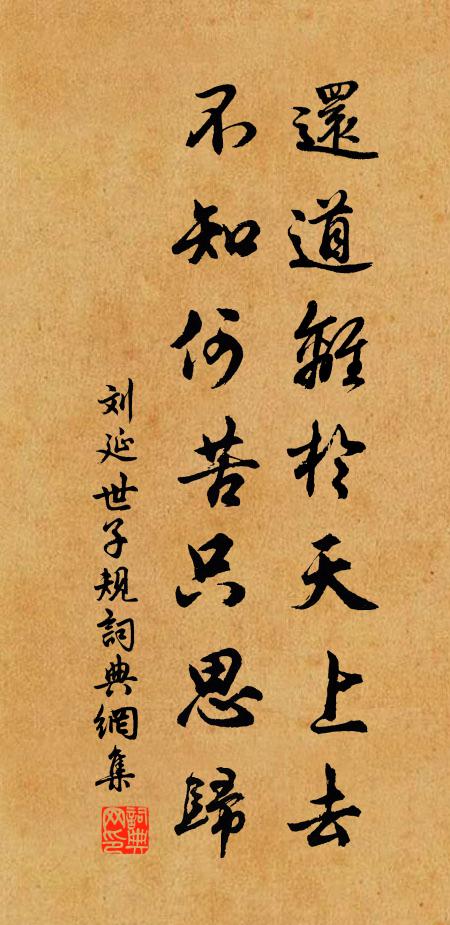 還道難於天上去
不知何苦只思歸
刘延世子規詞典網集
詞典網印